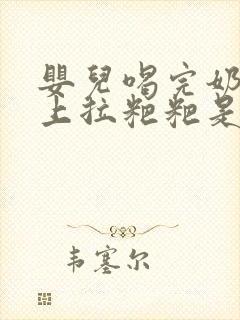 嬰兒喝完奶
上拉粑粑是
韦塞尔